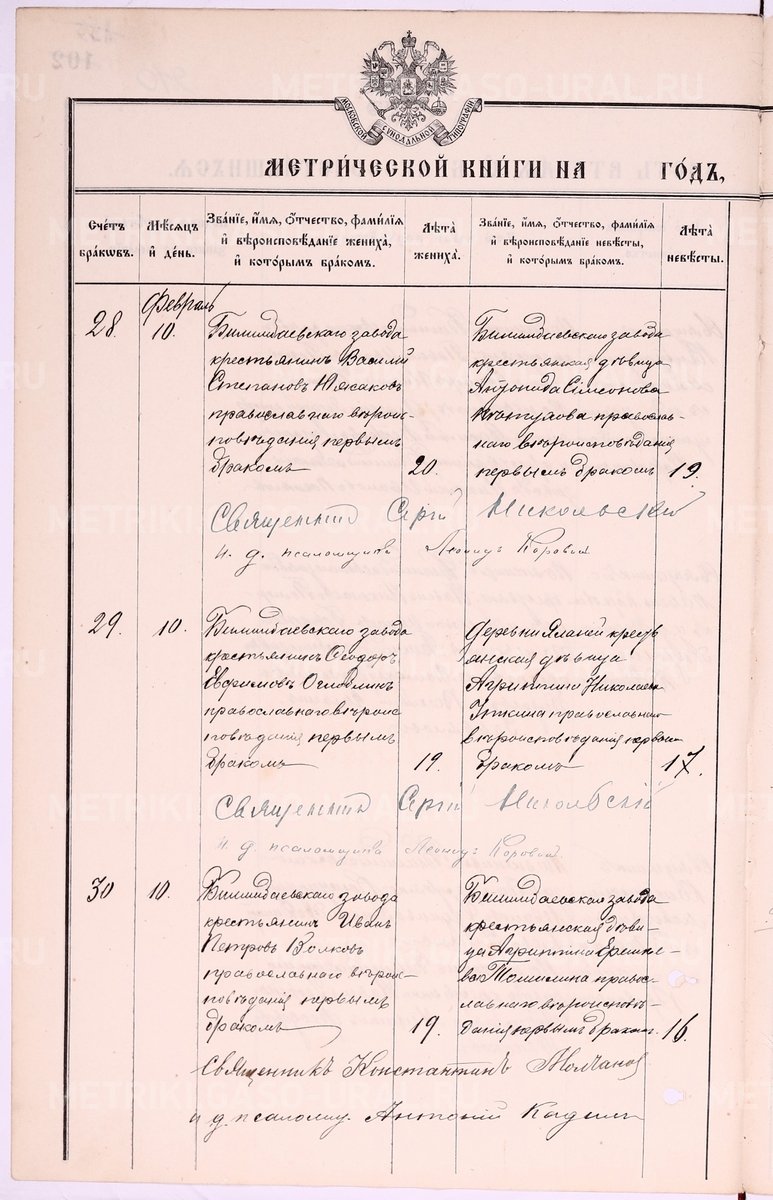 МОСКОВСКОЙ СѴНОДАЛЬНОЙ ТИПОГРАФІИ
МЕТРИ́ЧЕСКОЙ КНИ́ГИ НА ГО́ДЪ,
Сче́тъ бра́кωвъ.
Мѣ́сяцъ и҆ де́нь.
Зва́нїе, и҆́мѧ, ѻ҆́тчество, фами́лїѧ
и҆ вѣроисповѣ́данїе жениха̀,
и҆ кото́рымъ бра́комъ.
Лѣ́та жениха̀.
Зва́нїе, и҆́мѧ, ѻ҆́тчество, фами́лїѧ
и҆ вѣроисповѣ́данїе невѣ́сты,
и҆ кото́рымъ бра́комъ.
Лѣ́та невѣ́сты.
Февраль
28. 10.
Билимбаевскаго завода
крестьянинъ Василій
Степановъ
православнаго вѣроис-
повѣданія первымъ
бракомъ 20.
Билимбаевскаго завода
крестьянская дѣвица
Антонида Симеонова
православ-
наго вѣроисповѣданія
первымъ бракомъ 19.
Священникъ Сергій Никольскій
и. д. псаломщика Леонидъ Коровинъ
29. 10.
Билимбаевскаго завода
крестьянинъ Ѳеодоръ
Евфимовъ Оглоблинъ
православнаго вѣроис-
повѣданія первымъ
бракомъ 19.
Деревни крестъ
янская дѣвица
Агриппина Николаева
православнаго
вѣроисповѣданія первымъ
бракомъ 17.
Священникъ Сергій Никольскій
и. д. псаломщика Леонидъ Коровинъ
30 10.
Билимбаевскаго завода
крестьянинъ Иванъ
Петровъ Волковъ
православнаго вѣроис-
повѣданія первымъ
бракомъ 19.
Билимбаевскаго завода
крестьянская дѣви-
ца Агриппина
Томилина правос-
лавнаго вѣроисповѣ-
данія первымъ браком. 16.
Священникъ Константинъ Молчановъ
и д. псаломщ. Антоній
METRIKI.GASO-URAL.RU